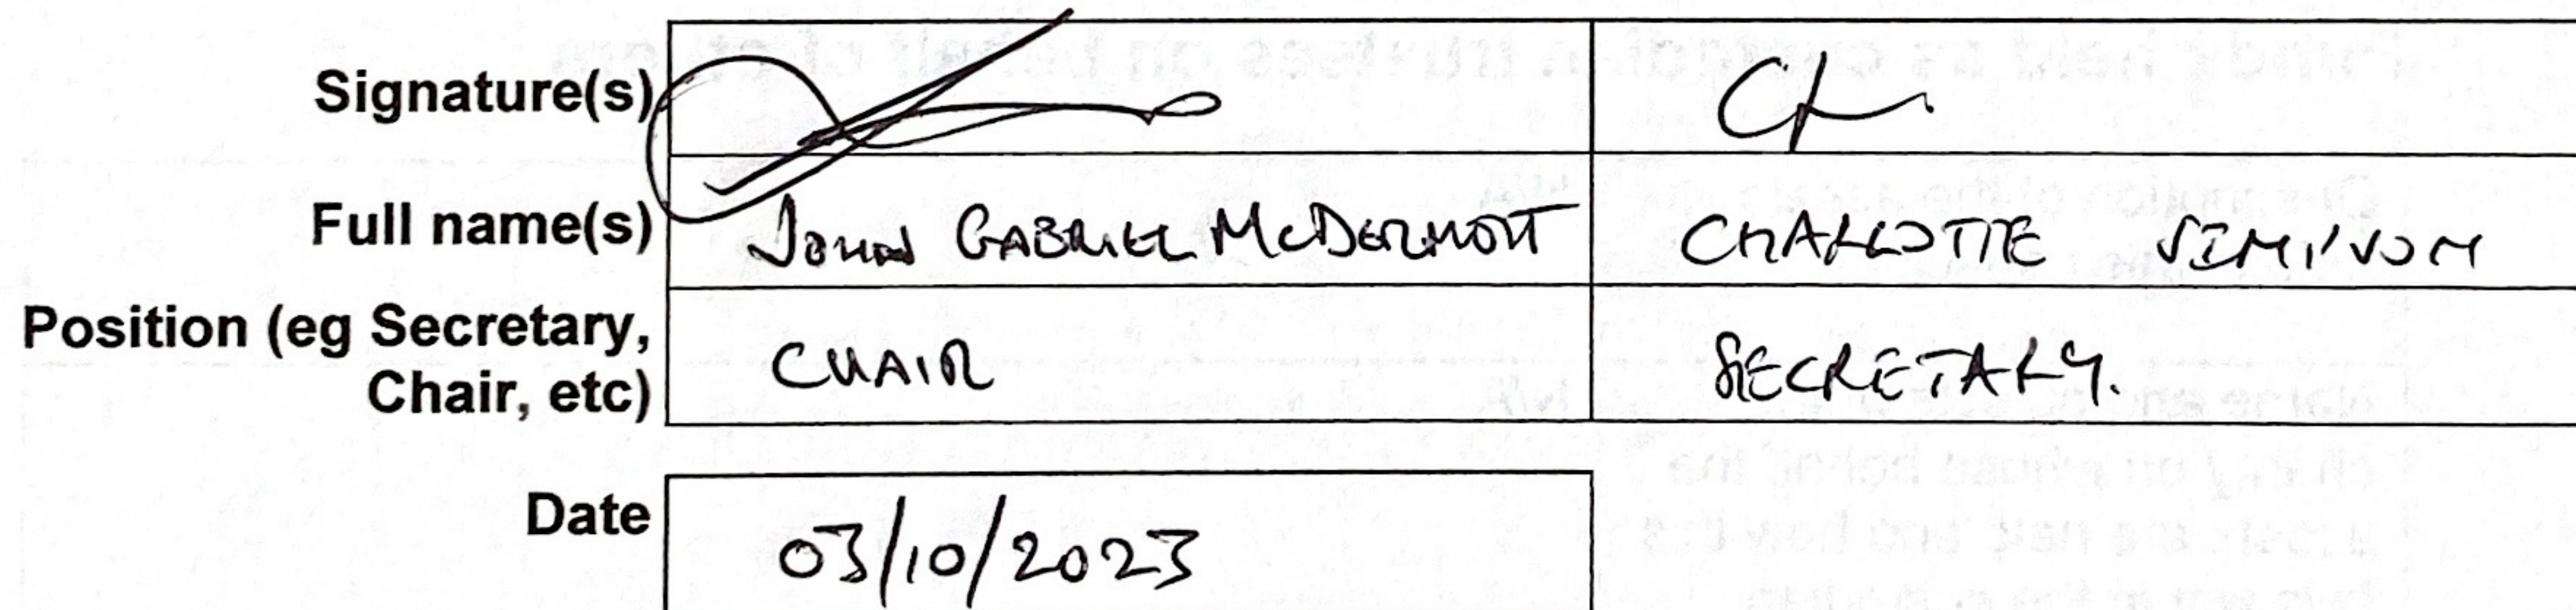 Signature(s)
Full name(s) JOHN GABRIEL McDERMOTT CHARLOTTE
Position (eg Secretary,
Chair, etc) CHAIR SECRETARY.
Date 03/10/2023